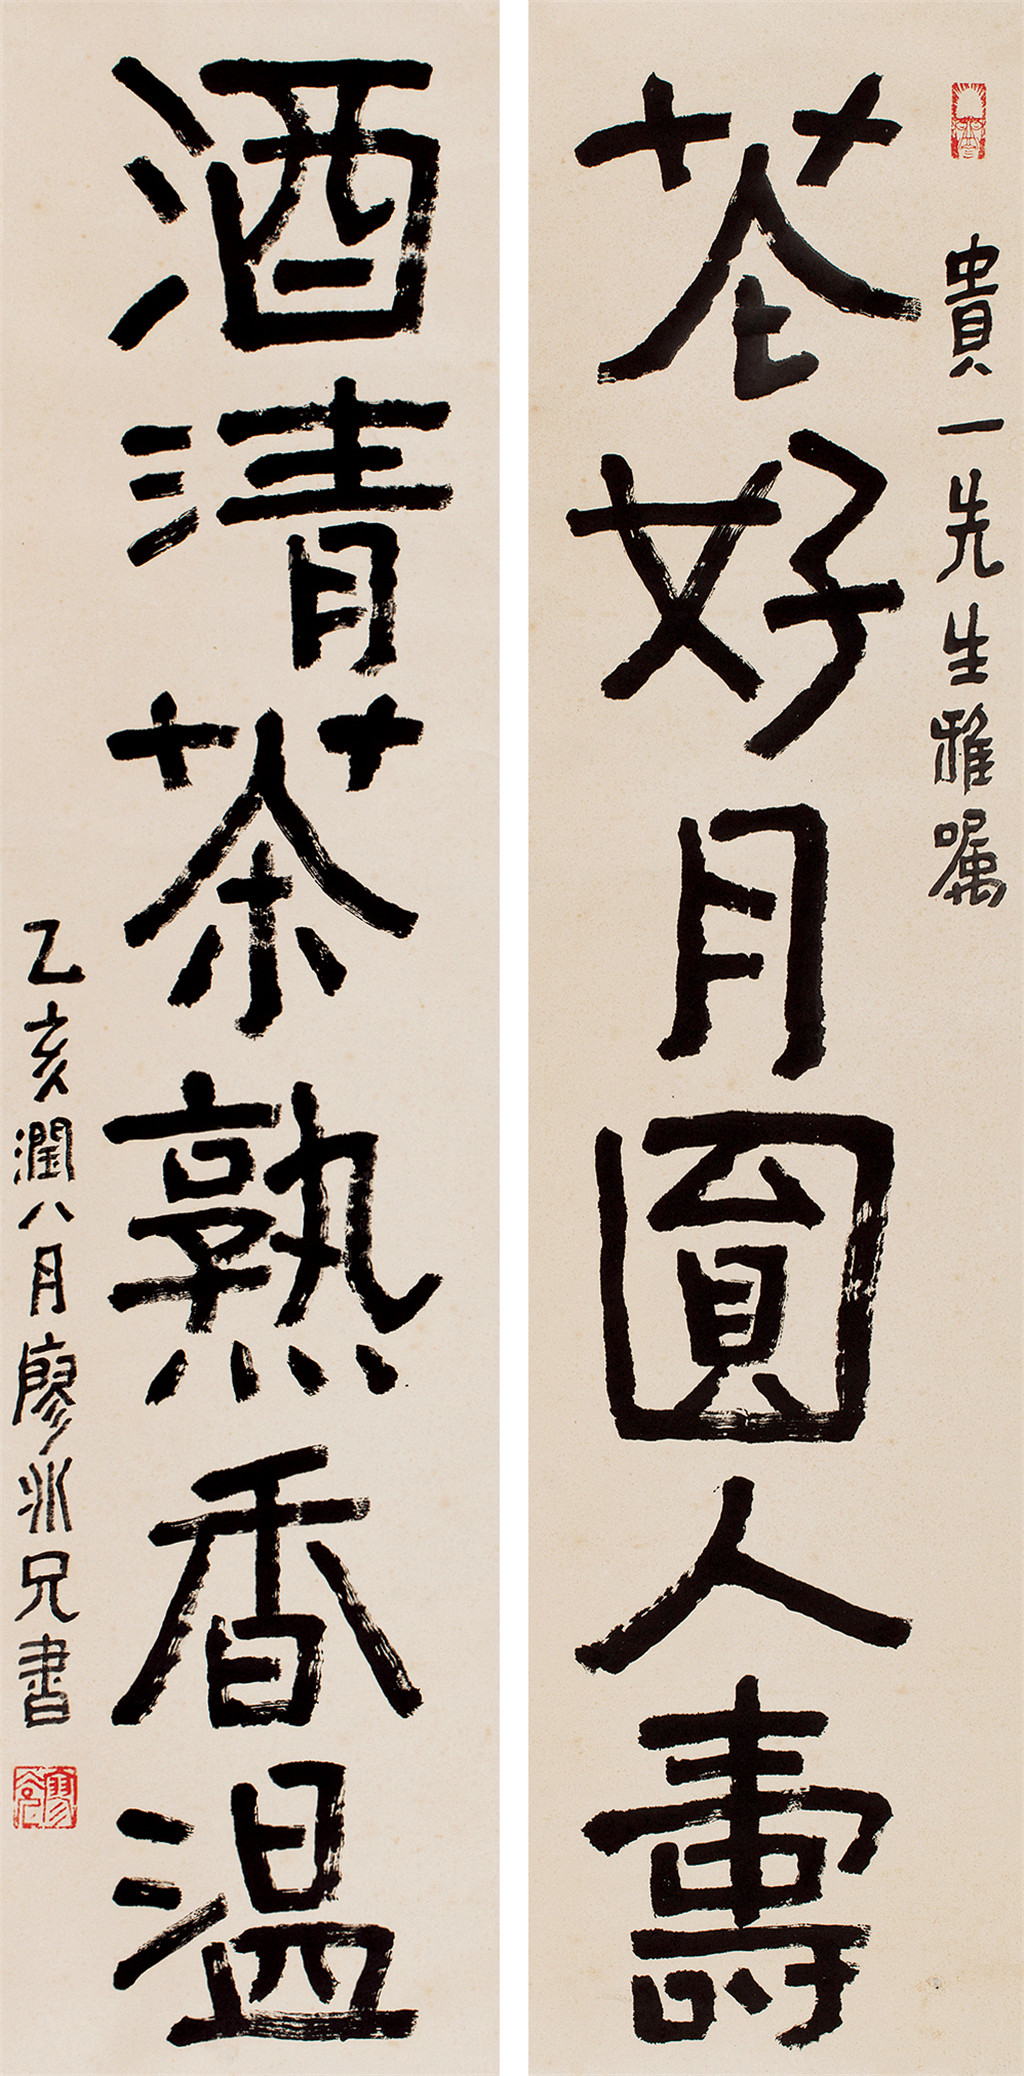 貴一先生雅嘱
花好月圓人壽
酒清茶熟香温
乙亥潤八月廖冰兄書